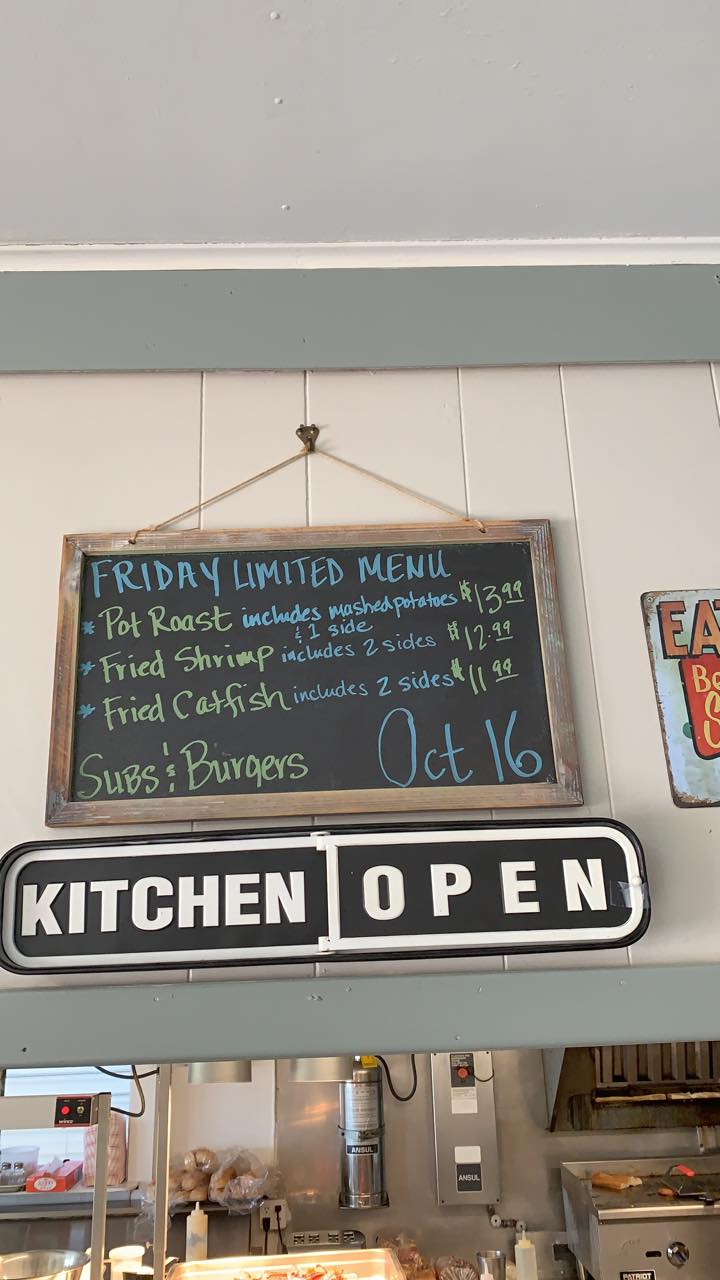 FRIDAY LIMITED MENU
* Pot Roast includes mashed potatoes $13.99
& 1 side
* Fried Shrimp includes 2 sides $12.99
* Fried Catfish includes 2 sides $11.99
Subs & Burgers Oct 16
KITCHEN OPEN
EA
Be
winco
ANSUL
ANSUL
PATRIOT